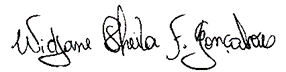 Widjane Sheila F. Gonçalves